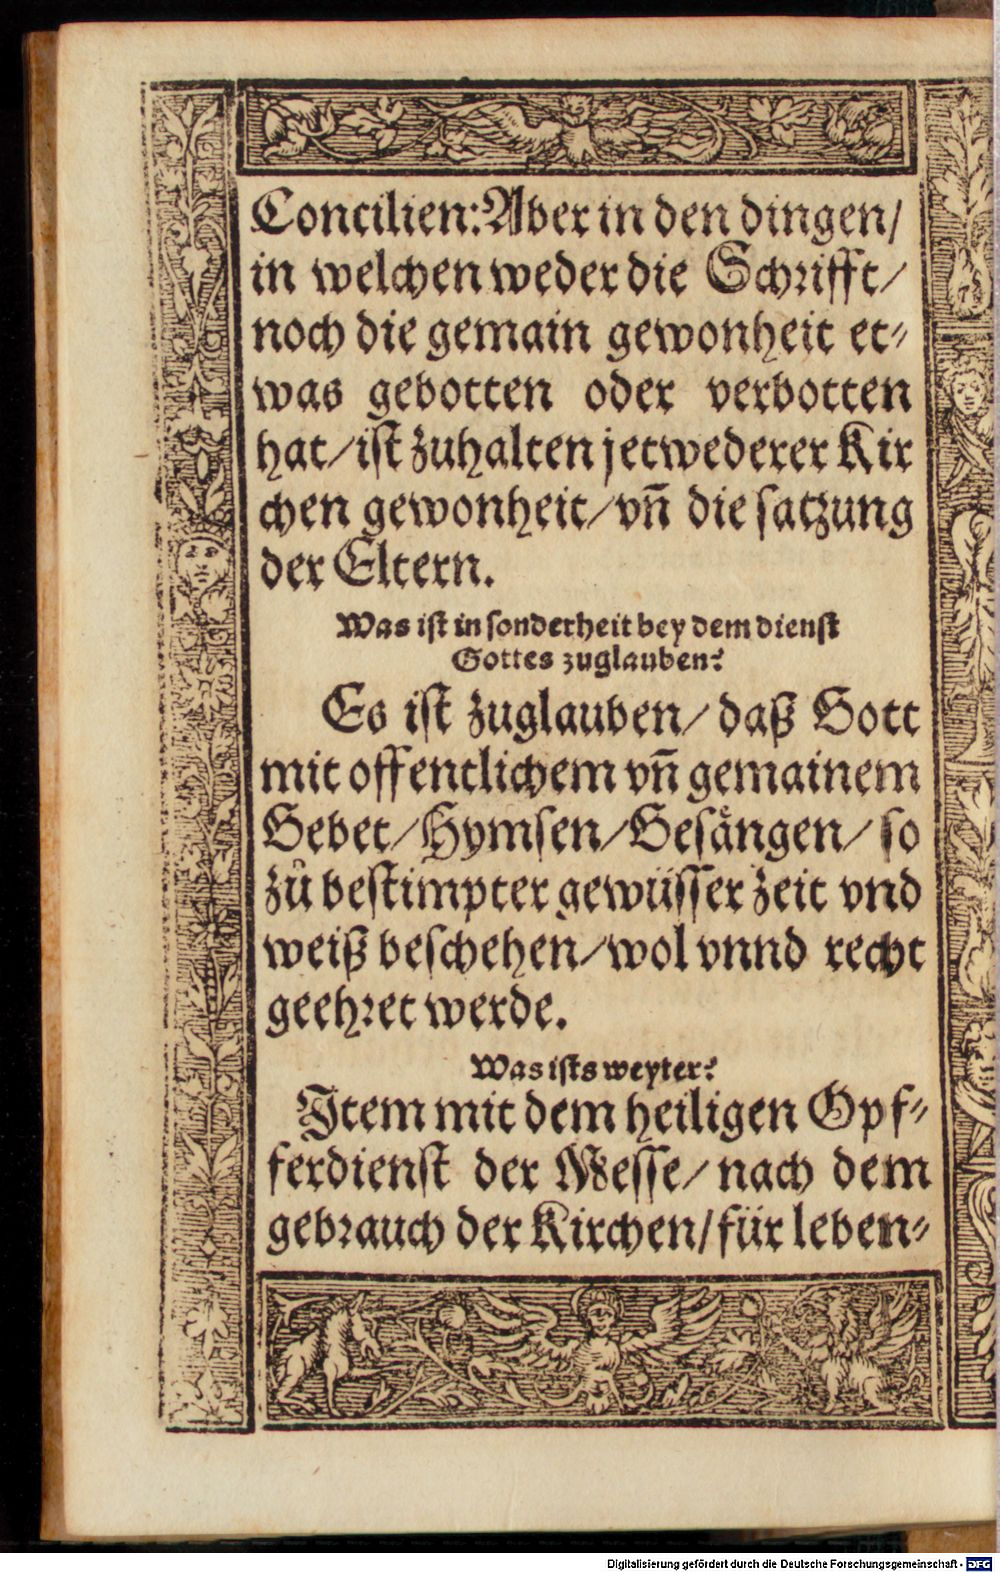 Concilien: Aber in den dingen/
in welchen weder die Schrifft/
noch die gemain gewonheit et⸗
was gebotten oder verbotten
hat/ ist zuhalten jetwederer Kir
chen gewonheit/ vn̄ die satzung
der Eltern.
Was ist in sonderheit bey dem dienst
Gottes zuglauben?
Es ist zuglauben/ daß Gott
mit offentlichem vn̄ gemainem
Gebet/ Hymsen/ Gesaͤngen/ so
zuͦ bestimpter gewüsser zeit vnd
weiß beschehen/ wol vnnd recht
geehret werde.
Was ists weyter?
Item mit dem heiligen Opf⸗
ferdienst der Messe/ nach dem
gebrauch der Kirchen/ für leben⸗
Digitalisierung gefördert durch die Deutsche Forschungsgemeinschaft - DFG